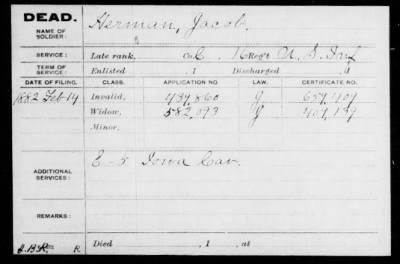 DEAD.
NAME OF SOLDIER: Herman, Jacob.
SERVICE: Late rank, Co. C, 16 Reg't U. S. Inf
TERM OF SERVICE: Enlisted , 1 Discharged , 1
DATE OF FILING. CLASS. APPLICATION NO. LAW. CERTIFICATE NO.
1882 Feb 14 Invalid, 439,860 G 657,409
Widow, 582,093 G 401,139
Minor,
ADDITIONAL SERVICES: E - 5 Iowa Cav.
REMARKS:
R Died , 1 , at